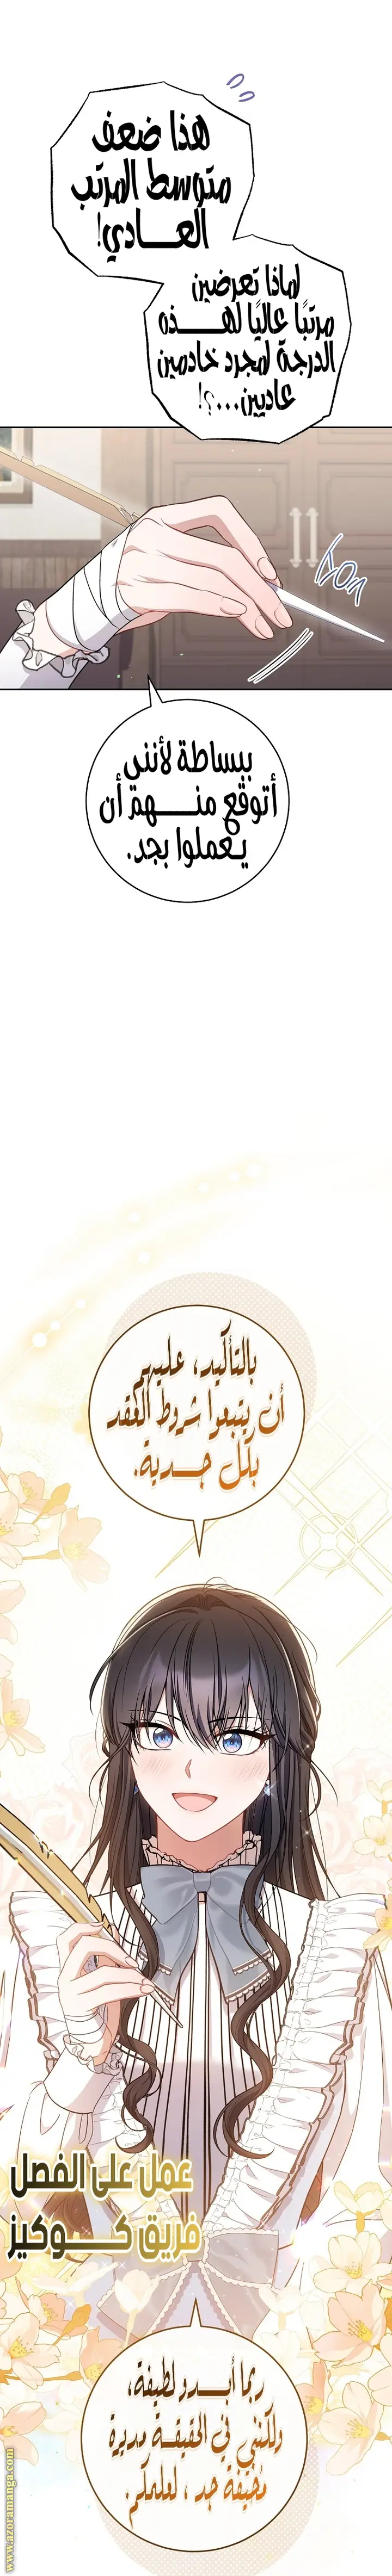 هذا ضعف
متوسط المرتب
العادي!
لماذا تعرضين
مرتبًا عاليًا لهذه
الدرجة لمجرد خادمين
عاديين...؟!
ببساطة لأنني
أتوقع منهم أن
يعملوا بجد.
بالتأكيد، عليهم
أن يتبعوا شروط العقد
بكل جدية.
عمل على الفصل
فريق كوكيز
ربما أبدو لطيفة،
ولكنني في الحقيقة مديرة
مُخيفة جد ، لعلمكم.
www.azoramanga.com